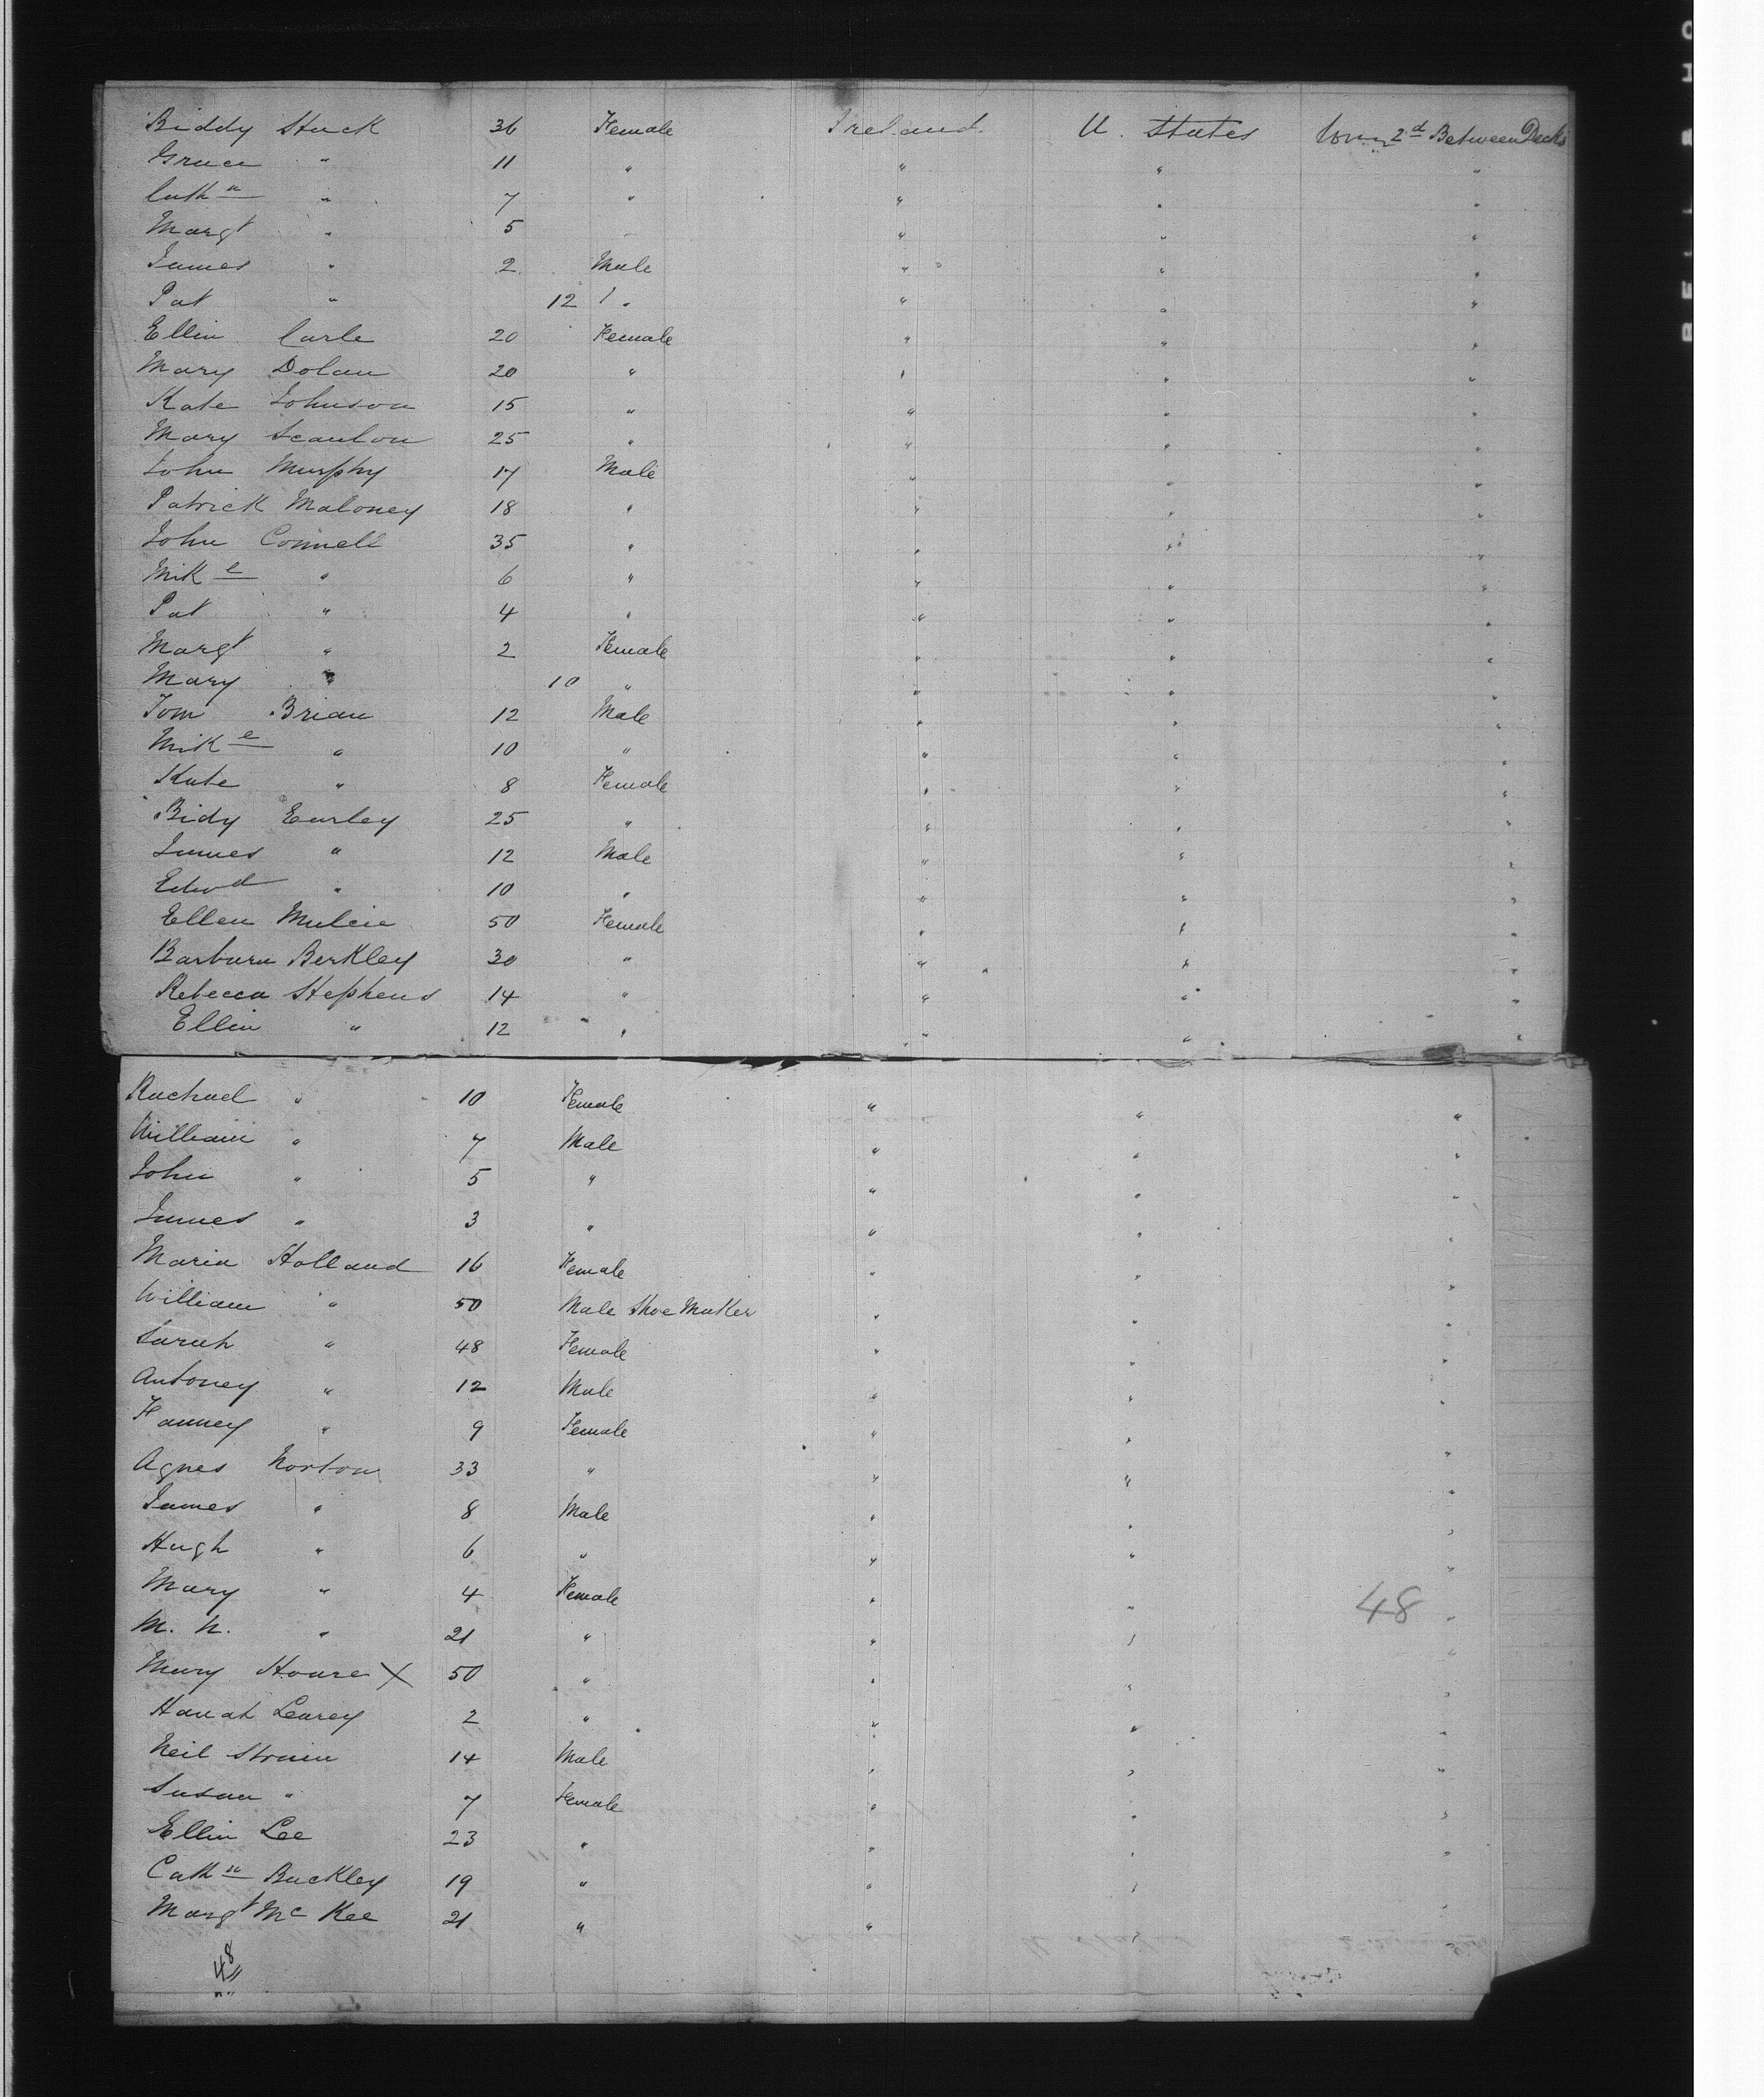 Biddy Stack 36 Female Ireland U. States 2d Between Decks
Grace " 11 " " " "
Cathn " 7 " " " "
Margt " 5 " " " "
James " 2 Male " " "
Pat " 12 " " " "
Ellin Carle 20 Female " " "
Mary Dolan 20 " " " "
Kate Johnson 15 " " " "
Mary Scanlon 25 " " " "
John Murphy 17 Male " " "
Patrick Maloney 18 " " " "
John Connell 35 " " " "
Mike " 6 " " " "
Pat " 4 " " " "
Margt " 2 Female " " "
Mary " 10 " " " "
Tom Brian 12 Male " " "
Mike " 10 " " " "
Kate " 8 Female " " "
Bidy Earley 25 " " " "
James " 12 Male " " "
Edwd " 10 " " " "
Ellen 50 Female " " "
Barbara Berkley 30 " " " "
Rebecca Stephens 14 " " " "
Ellin " 12 " " " "
Rachael " 10 Female " " "
William " 7 Male " " "
John " 5 " " " "
James " 3 " " " "
Maria Holland 16 Female " " "
William " 50 Male Shoe Maker " " "
Sarah " 48 Female " " "
Antoney " 12 Male " " "
Fanney " 9 Female " " "
Agnes Norton 33 " " " "
James " 8 Male " " "
Hugh " 6 " " " "
Mary " 4 Female " " "
M. N. " 21 " " " "
48
Mary Hoare X 50 " " " "
Hanah Learey 2 " " " "
Neil Strain 14 Male " " "
Susan " 7 Female " " "
Ellin Lee 23 " " " "
Cathn Buckley 19 " " " "
Margt McKee 21 " " " "
48